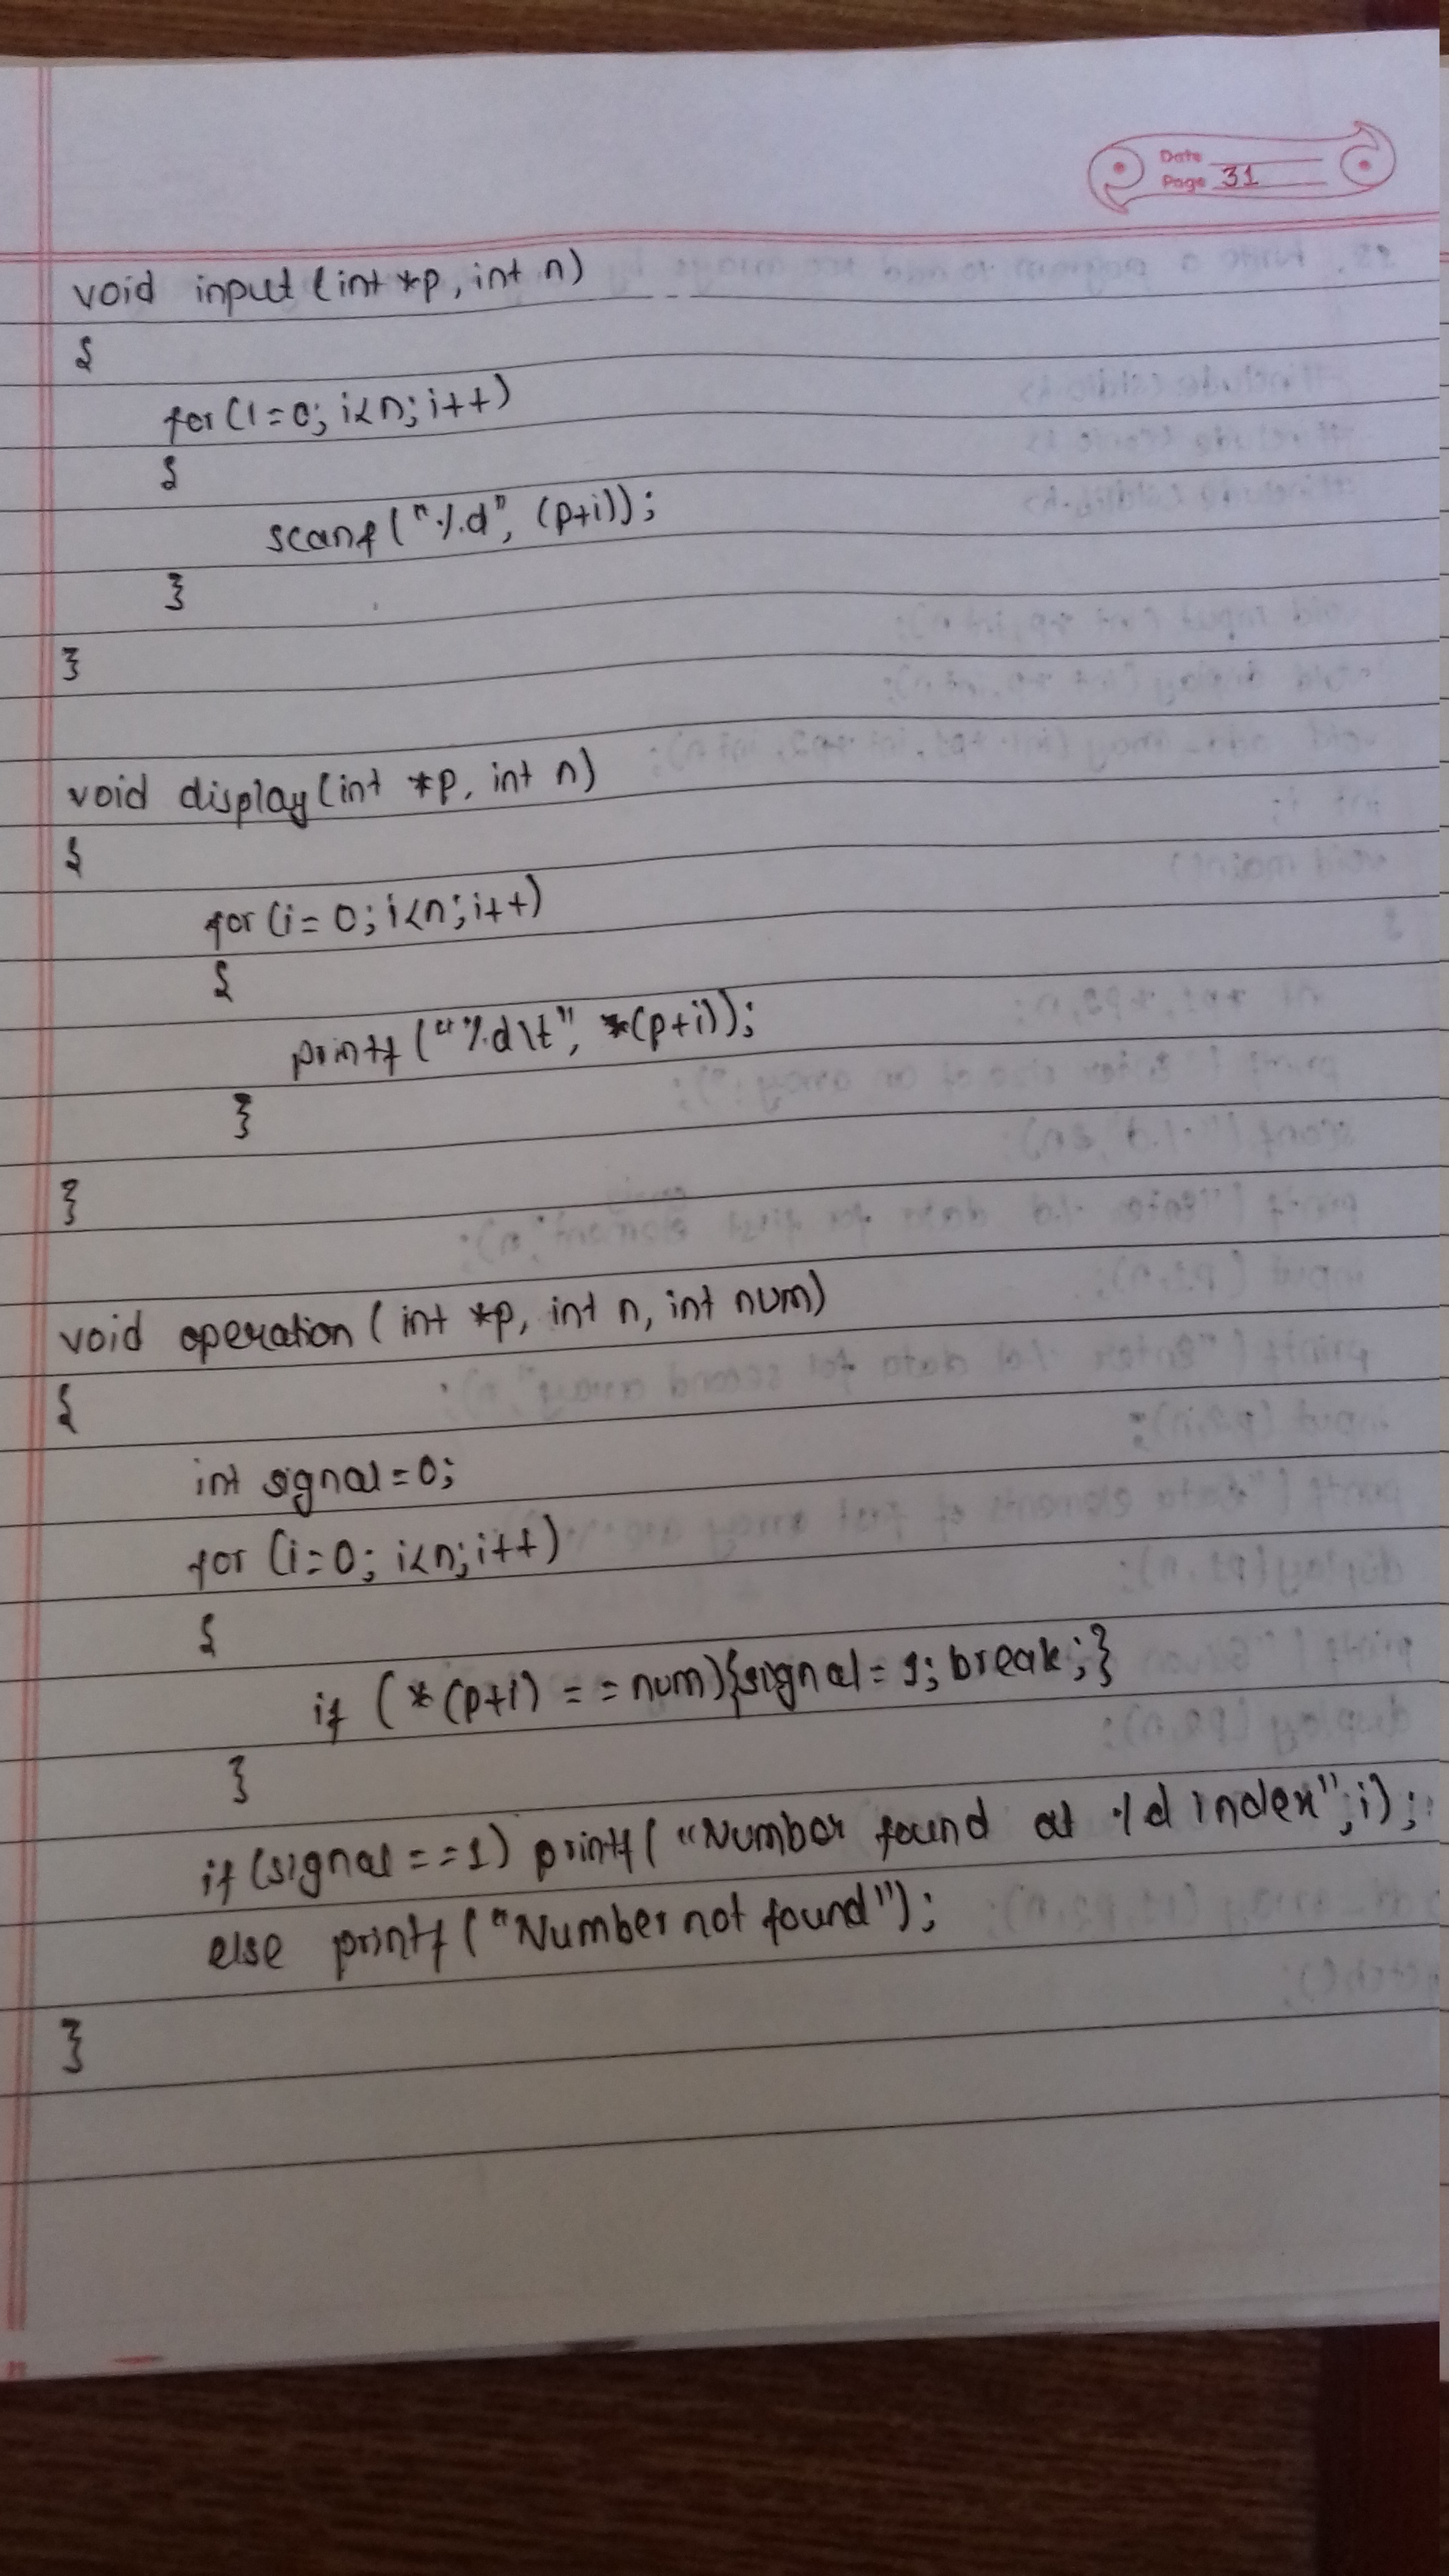 Date
Page 31
void input (int *p, int n)
{
for (i=0; i<n; i++)
{
scanf ("%d", (p+i));
}
}
void display (int *p, int n)
{
for (i=0; i<n; i++)
{
printf ("%d\t", *(p+i));
}
}
void operation (int *p, int n, int num)
{
int signal=0;
for (i=0; i<n; i++)
{
if (*(p+i) == num){signal=1; break;}
}
if (signal==1) printf ("Number found at %d index", i);
else printf ("Number not found");
}